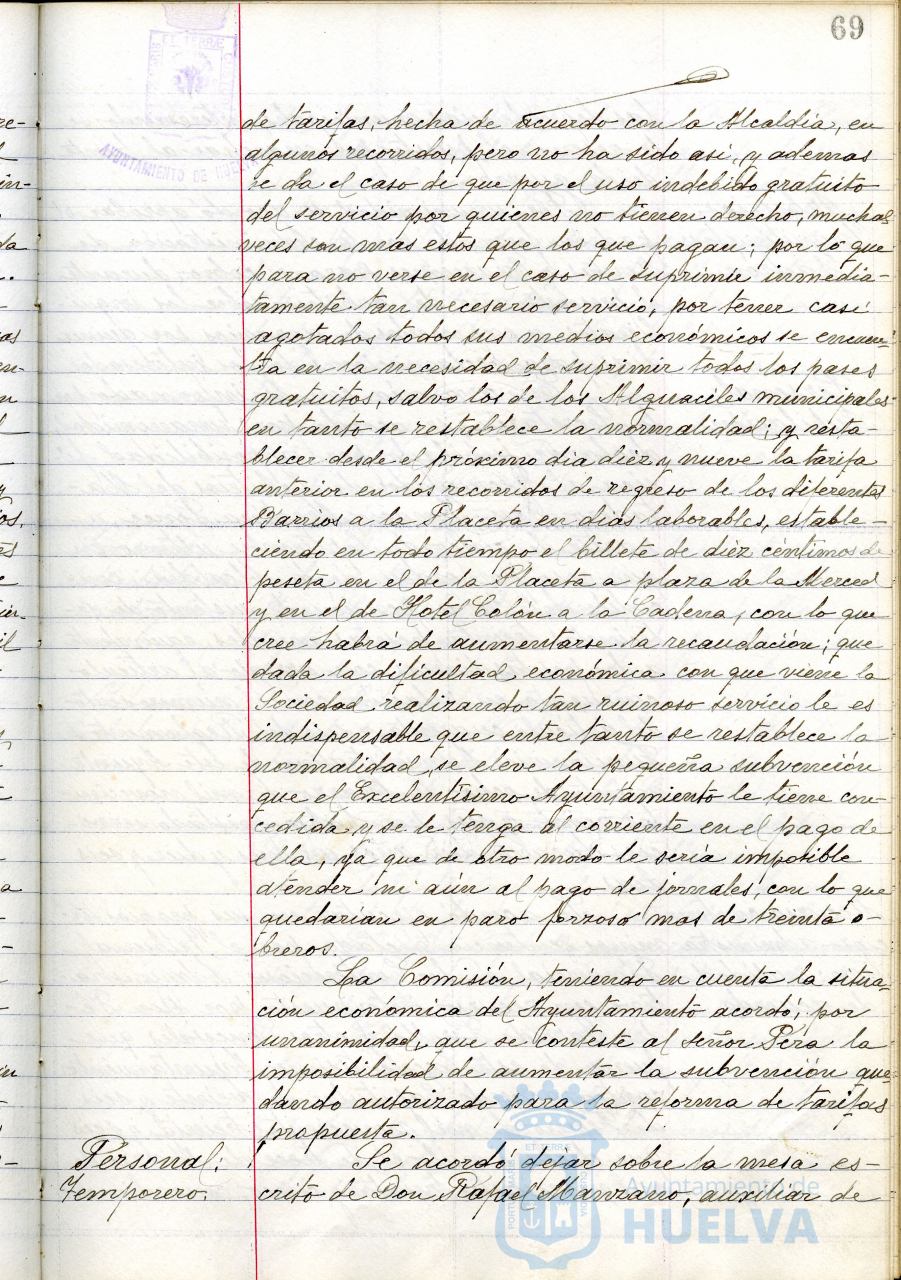 69
ET TERRÆ
AYUNTAMIENTO DE HUELVA
de tarifas, hecha de acuerdo con la Alcaldía, en
algunos recorridos, pero no ha sido asi, y ademas
se da el caso de que por el uso indebido gratuito
del servicio por quienes no tienen derecho, muchas
veces son mas estos que los que pagan; por lo que
para no verse en el caso de suprimir inmedia-
tamente tan necesario servicio, por tener casi
agotados todos sus medios económicos se encuen-
tra en la necesidad de suprimir todos los pases
gratuitos, salvo los de los Alguaciles municipales
en tanto se restablece la normalidad; y resta-
blecer desde el próximo dia diez y nueve la tarifa
anterior en los recorridos de regreso de los diferentes
Barrios a la Placeta en dias laborables, estable-
ciendo en todo tiempo el billete de diéz céntimos de
peseta en el de la Placeta a plaza de la Merced
y en el de Hotel Colón a la Cadena, con lo que
cree habrá de aumentarse la recaudación; que
dada la dificultad económica con que viene la
Sociedad realizando tan ruinoso servicio le es
indispensable que entre tanto se restablece la
normalidad, se eleve la pequeña subvención
que el Excelentísimo Ayuntamiento le tiene con-
cedida y se le tenga al corriente en el pago de
ella, ya que de otro modo le sería imposible
atender ni aún al pago de jornales, con lo que
quedarían en paro forzoso mas de treinta o-
breros.
La Comisión, teniendo en cuenta la situa-
ción económica del Ayuntamiento acordó, por
unanimidad, que se conteste al señor Pera la
imposibilidad de aumentar la subvención que-
dando autorizado para la reforma de tarifas
propuesta.
Personal:
Temporero.
Se acordó dejar sobre la mesa es-
crito de Don Rafael Manzano, auxiliar de
Ayuntamiento de
HUELVA